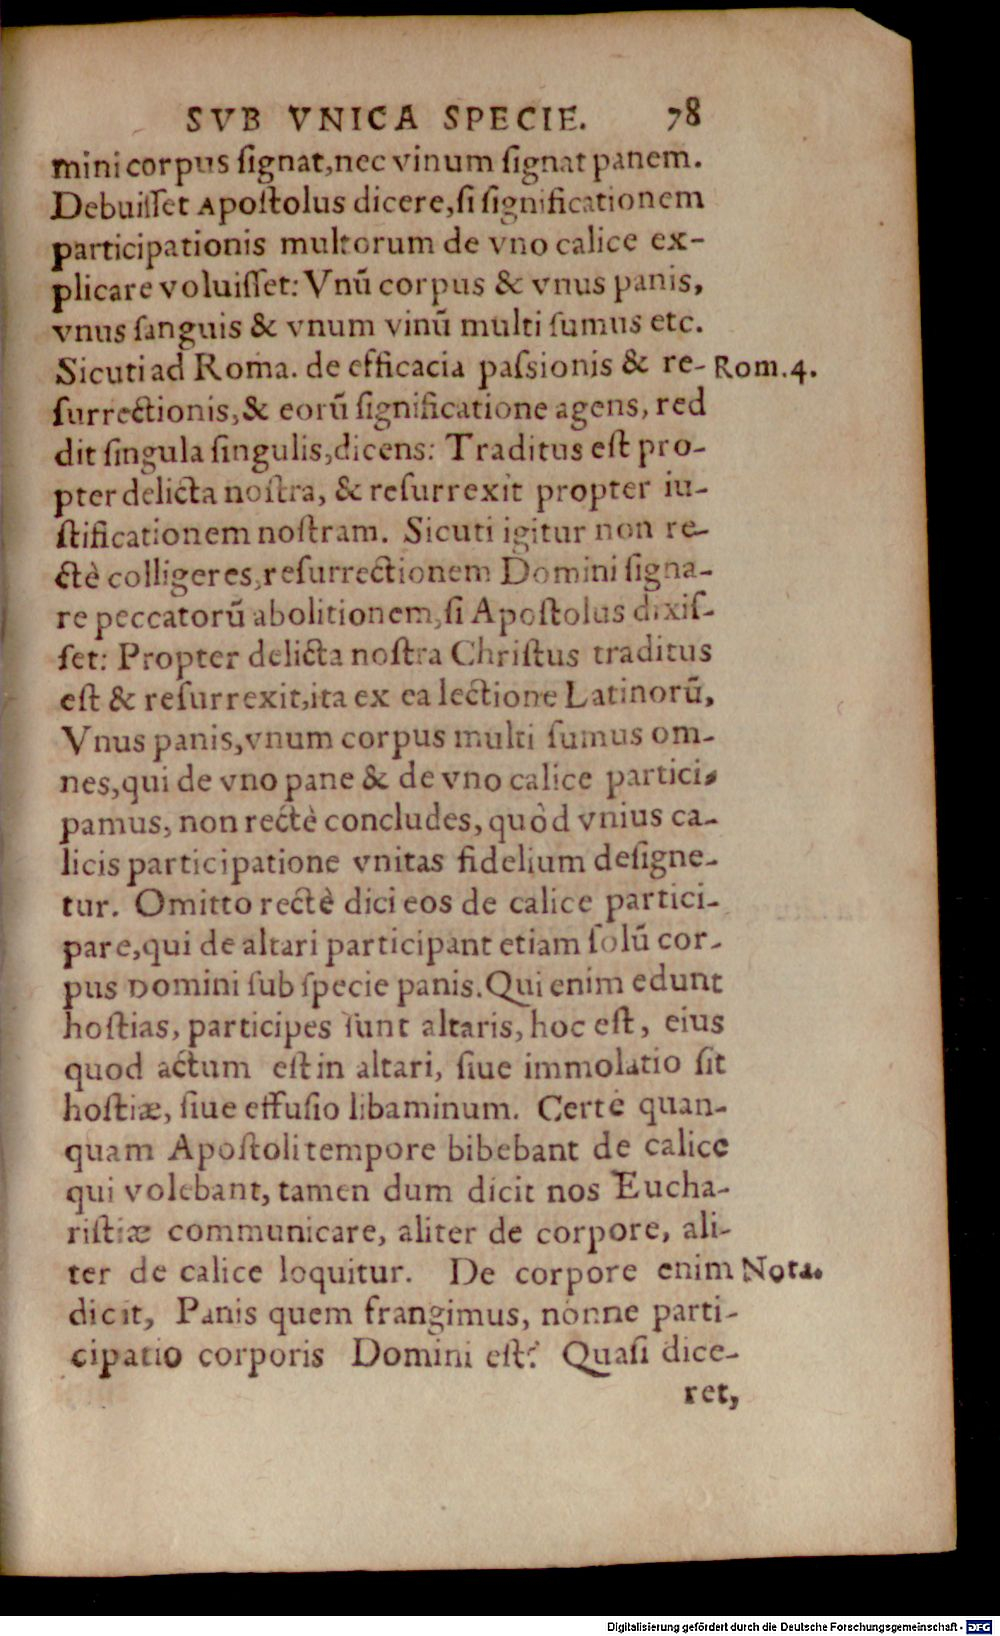 SVB VNICA SPECIE. 78
mini corpus ſignat, nec vinum ſignat panem.
Debuiſſet Apoſtolus dicere, ſi ſignificationem
participationis multorum de vno calice ex-
plicare voluiſſet: Vnū corpus & vnus panis,
vnus ſanguis & vnum vinū multi ſumus etc.
Sicuti ad Roma. de efficacia paſsionis & re- Rom. 4.
ſurrectionis, & eorū ſignificatione agens, red
dit ſingula ſingulis, dicens: Traditus eſt pro-
pter delicta noſtra, & reſurrexit propter iu-
ſtificationem noſtram. Sicuti igitur non re-
ctè colligeres, reſurrectionem Domini ſigna-
re peccatorū abolitionem, ſi Apoſtolus dixiſ-
ſet: Propter delicta noſtra Chriſtus traditus
eſt & reſurrexit, ita ex ea lectione Latinorū,
Vnus panis, vnum corpus multi ſumus om-
nes, qui de vno pane & de vno calice partici-
pamus, non rectè concludes, quòd vnius ca-
licis participatione vnitas fidelium deſigne-
tur. Omitto rectè dici eos de calice partici-
pare, qui de altari participant etiam ſolū cor-
pus Domini ſub ſpecie panis. Qui enim edunt
hoſtias, participes ſunt altaris, hoc eſt, eius
quod actum eſt in altari, ſiue immolatio ſit
hoſtiæ, ſiue effuſio libaminum. Certè quan-
quam Apoſtoli tempore bibebant de calice
qui volebant, tamen dum dicit nos Eucha-
riſtiæ communicare, aliter de corpore, ali-
ter de calice loquitur. De corpore enim Nota.
dicit, Panis quem frangimus, nonne parti-
cipatio corporis Domini eſt? Quaſi dice-
ret,
Digitalisierung gefördert durch die Deutsche Forschungsgemeinschaft - DFG